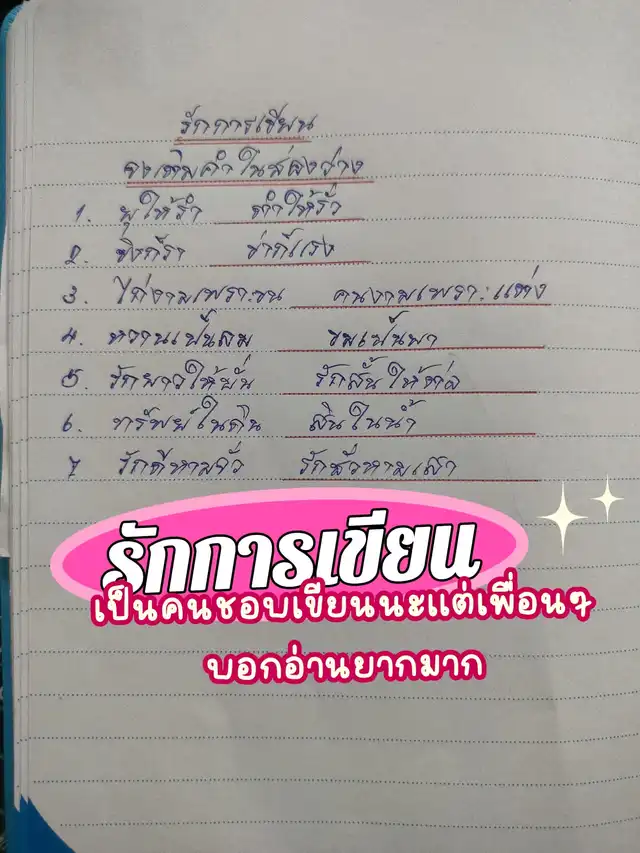 รักการเขียน
จงเติมคำในช่องว่าง
1. ยุให้รำ ตำให้รั่ว
2. ขิงก็รา ข่าก็แรง
3. ไก่งามเพราะขน คนงามเพราะแต่ง
4. หวานเป็นลม ขมเป็นยา
5. รักยาวให้บั่น รักสั้นให้ต่อ
6. ทรัพย์ในดิน สินในน้ำ
7 รักดีหามจั่ว รักชั่วหามเสา
รักการเขียน
เป็นคนชอบเขียนนะแต่เพื่อนๆ
บอกอ่านยากมาก